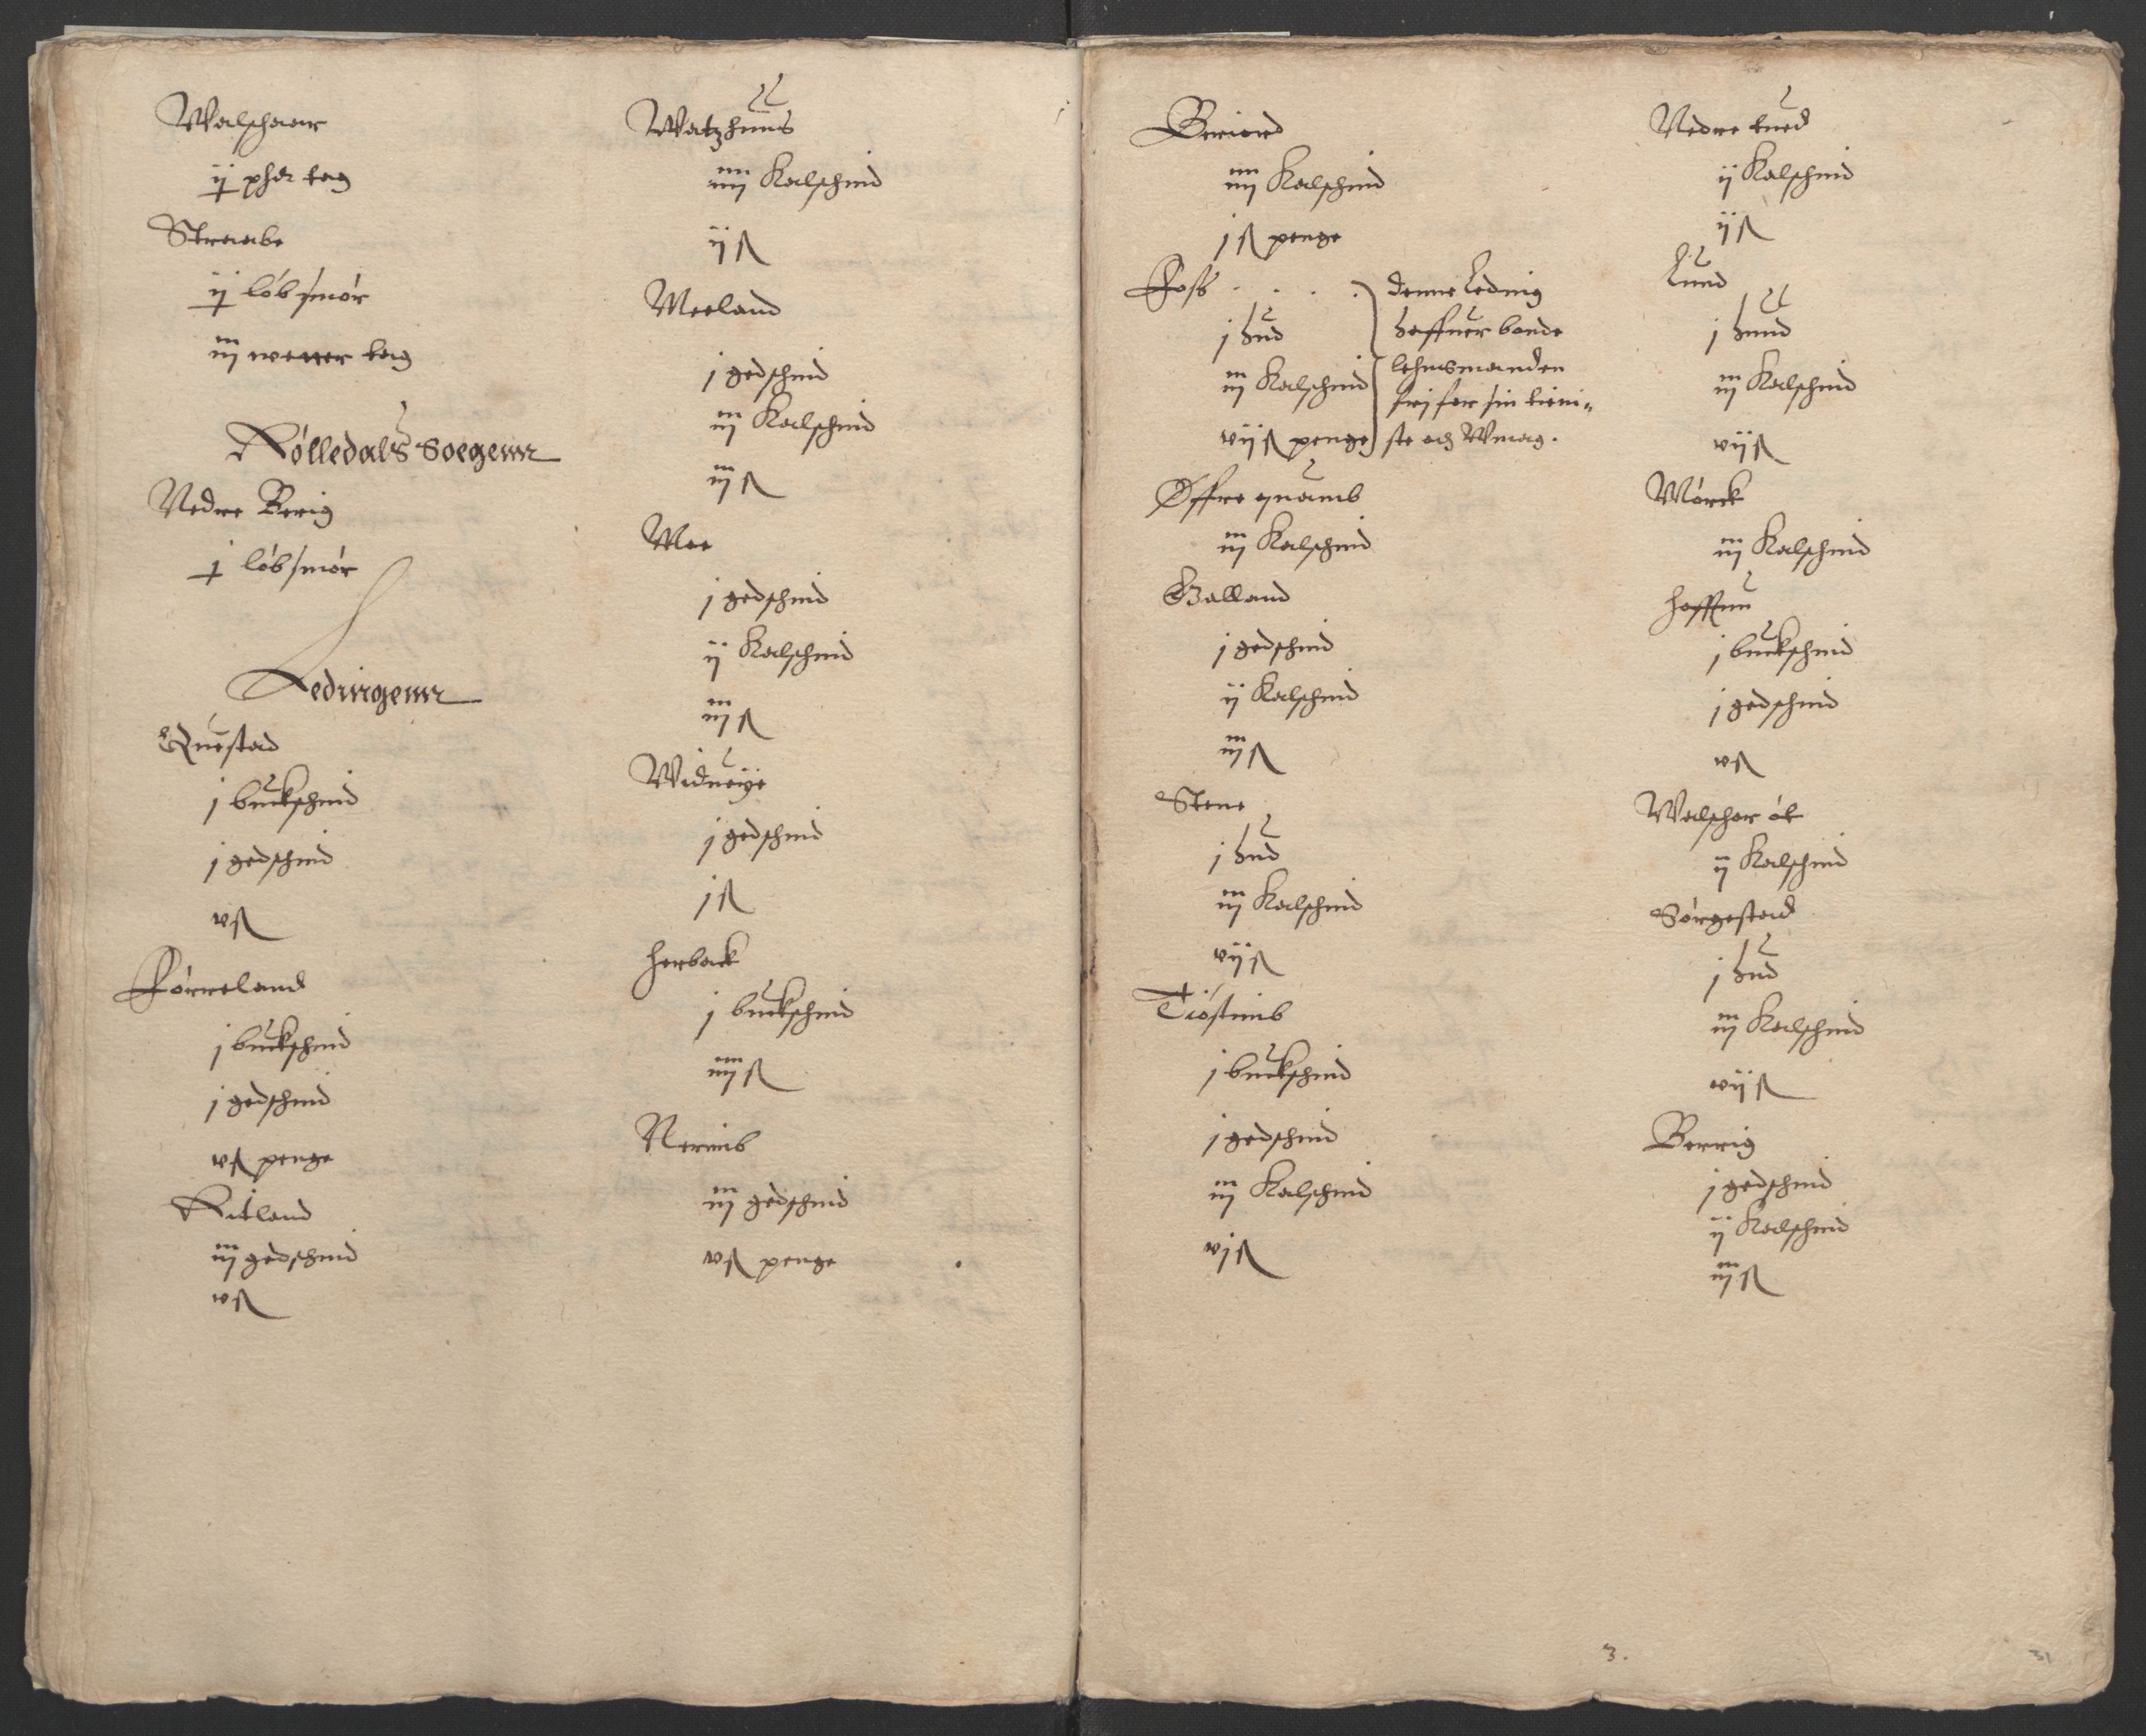 Walschaar
ij phd tog
Straabe
ij løb smør
iij wetter tog
Rølledals Soegenn
Nedre Berig
j løb smør
Ledingenn
Questad
j buckschind
j gedschind
v ß
Førreland
j buckschind
j gedschind
v ß penge
Ritland
iij gedschind
v ß
Watzhuus
iiij Kalschind
ij ß
Meeland
j gedschind
iij Kalschind
iij ß
Moe
j gedschind
ij Kalschind
iij ß
Widueije
j gedschind
j ß
Herback
j buckschind
iiij ß
Nerimb
iij gedschind
v ß penge
Beriord
iiij Kalschind
j ß penge
Foss . . . . denne Leding
j hud haffuer bonde
iij Kalschind lehnsmanden
vij ß penge fri for sin tieni„
ste och Wmag.
Øffre quamb
iij Kalschind
Galland
j gedschind
ij Kalschind
iij ß
Stene
j hud
iij Kalschind
vij ß
Tiøstimb
j buckschind
j gedschind
iij Kalschind
vj ß
Nedre tued
ij Kalschind
ij ß
Lund
j huud
iij Kalschind
vij ß
Mørck
iij Kalschind
Haffun
j buckschind
j gedschind
v ß
Walschar øt
ij Kalschind
Sørgestad
j hud
iij Kalschind
vij ß
Berrig
j gedschind
ij Kalschind
iij ß
3.
31